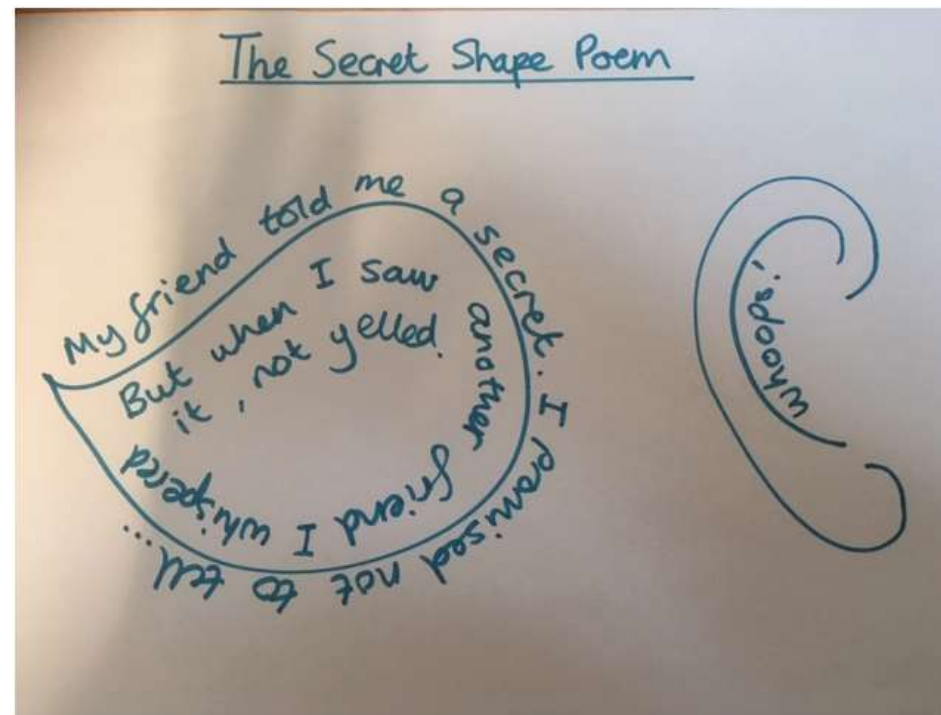 The Secret Shape Poem
My friend told me a secret. I promised not to tell...
But when I saw another friend I whispered
it, not yelled.
whoops!